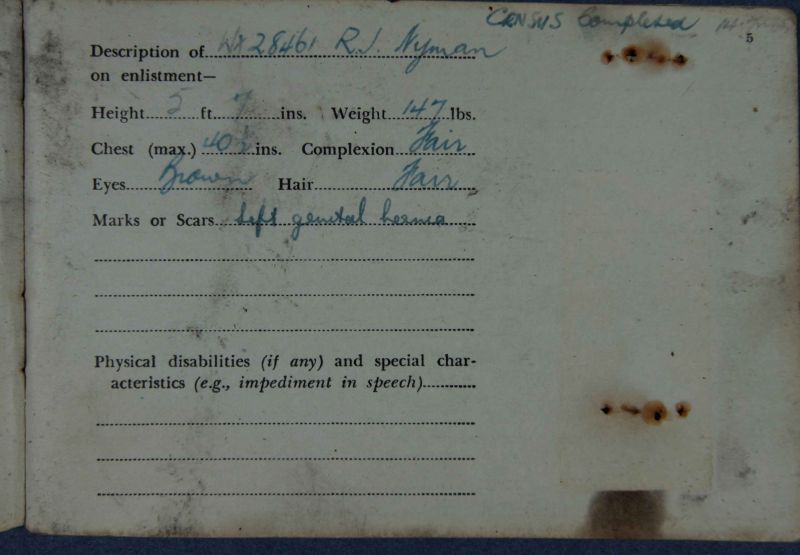 CENSUS Completed
5
Description of WX28461 R.J. Nyman
on enlistment—
Height 5 ft. 7 ins. Weight 147 lbs.
Chest (max.) 40½ ins. Complexion Fair
Eyes Brown Hair Fair
Marks or Scars Left genital hernia
Physical disabilities (if any) and special char-
acteristics (e.g., impediment in speech)